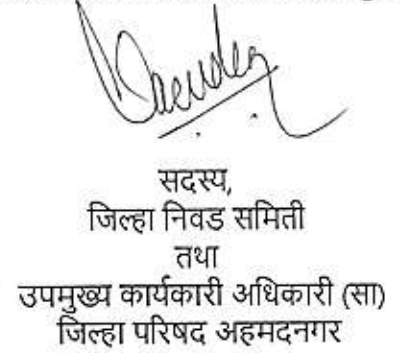 सदस्य,
जिल्हा निवड समिती
तथा
उपमुख्य कार्यकारी अधिकारी (सा)
जिल्हा परिषद अहमदनगर